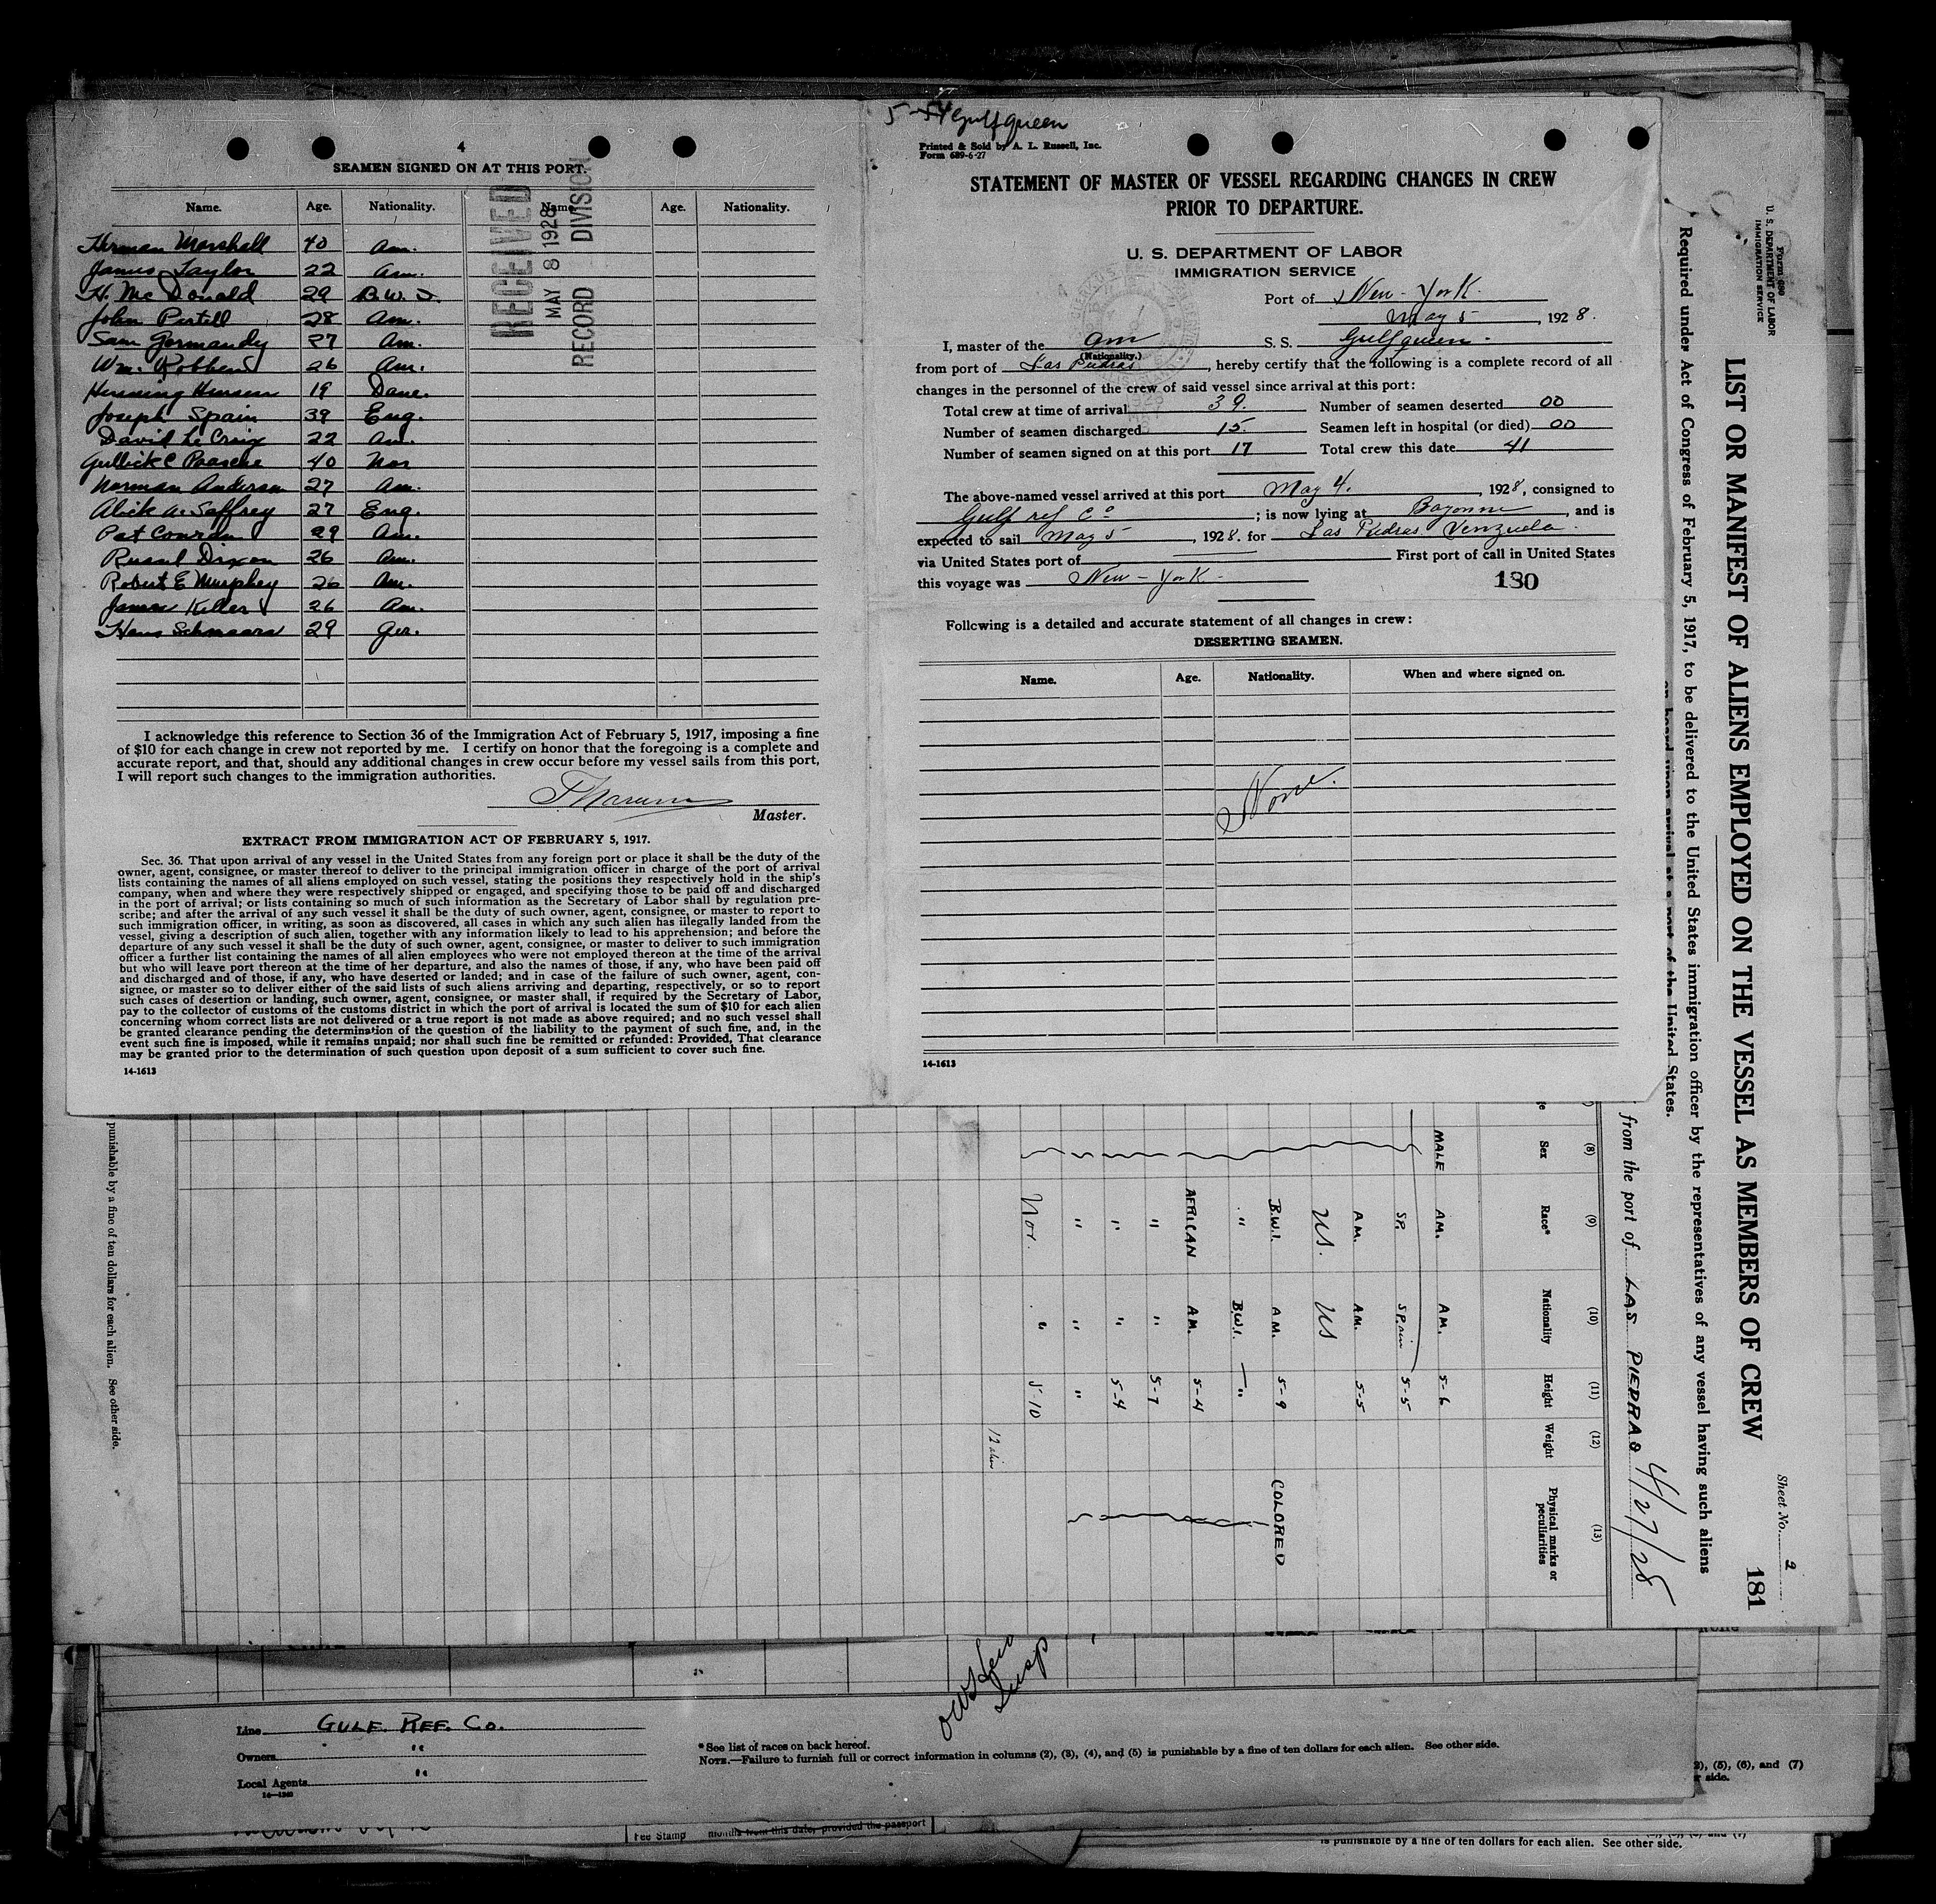 4
SEAMEN SIGNED ON AT THIS PORT.
Name. Age. Nationality. Name. Age. Nationality.
Herman Marshall 40 Am.
James Taylor 22 Am.
H. Mc Donald 29 B.W.I.
John Purtell 28 Am.
Sam Gormandy 27 Am.
Wm. Robbens 26 Am.
Henning Hansen 19 Dane.
Joseph Spain 39 Eng.
David Le Craig 22 Am.
Gullick C Paasche 40 Nor
Norman Anderson 27 Am.
Alick A. Saffrey 27 Eng.
Pat Conran 29 Am.
Russel Dixon 26 Am.
Robert E Murphey 26 Am.
James Keller 26 Am.
Hans Schnaars 29 Ger.
RECEIVED
MAY 8 1928
RECORD DIVISION
I acknowledge this reference to Section 36 of the Immigration Act of February 5, 1917, imposing a fine
of $10 for each change in crew not reported by me. I certify on honor that the foregoing is a complete and
accurate report, and that, should any additional changes in crew occur before my vessel sails from this port,
I will report such changes to the immigration authorities.
Master.
EXTRACT FROM IMMIGRATION ACT OF FEBRUARY 5, 1917.
Sec. 36. That upon arrival of any vessel in the United States from any foreign port or place it shall be the duty of the
owner, agent, consignee, or master thereof to deliver to the principal immigration officer in charge of the port of arrival
lists containing the names of all aliens employed on such vessel, stating the positions they respectively hold in the ship's
company, when and where they were respectively shipped or engaged, and specifying those to be paid off and discharged
in the port of arrival; or lists containing so much of such information as the Secretary of Labor shall by regulation pre-
scribe; and after the arrival of any such vessel it shall be the duty of such owner, agent, consignee, or master to report to
such immigration officer, in writing, as soon as discovered, all cases in which any such alien has illegally landed from the
vessel, giving a description of such alien, together with any information likely to lead to his apprehension; and before the
departure of any such vessel it shall be the duty of such owner, agent, consignee, or master to deliver to such immigration
officer a further list containing the names of all alien employees who were not employed thereon at the time of the arrival
but who will leave port thereon at the time of her departure, and also the names of those, if any, who have been paid off
and discharged and of those, if any, who have deserted or landed; and in case of the failure of such owner, agent, con-
signee, or master so to deliver either of the said lists of such aliens arriving and departing, respectively, or so to report
such cases of desertion or landing, such owner, agent, consignee, or master shall, if required by the Secretary of Labor,
pay to the collector of customs of the customs district in which the port of arrival is located the sum of $10 for each alien
concerning whom correct lists are not delivered or a true report is not made as above required; and no such vessel shall
be granted clearance pending the determination of the question of the liability to the payment of such fine, and, in the
event such fine is imposed, while it remains unpaid; nor shall such fine be remitted or refunded: Provided, That clearance
may be granted prior to the determination of such question upon deposit of a sum sufficient to cover such fine.
14-1613
5-54 Gulfqueen
Printed & Sold by A. L. Russell, Inc.
Form 689-6-27
STATEMENT OF MASTER OF VESSEL REGARDING CHANGES IN CREW
PRIOR TO DEPARTURE.
U. S. DEPARTMENT OF LABOR
IMMIGRATION SERVICE
Port of New-York.
May 5, 1928.
I, master of the Am S. S. Gulfqueen.
(Nationality.)
from port of Las Piedras, hereby certify that the following is a complete record of all
changes in the personnel of the crew of said vessel since arrival at this port:
Total crew at time of arrival 39. Number of seamen deserted 00
Number of seamen discharged 15. Seamen left in hospital (or died) 00
Number of seamen signed on at this port 17 Total crew this date 41
The above-named vessel arrived at this port May 4, 1928, consigned to
Gulf ref Co; is now lying at Bayonne, and is
expected to sail May 5, 1928. for Las Piedras Venzuela.
via United States port of First port of call in United States
this voyage was New-York.
180
Following is a detailed and accurate statement of all changes in crew:
DESERTING SEAMEN.
Name. Age. Nationality. When and where signed on.
None.
14-1613
Form 689
U. S. DEPARTMENT OF LABOR
IMMIGRATION SERVICE
Sheet No. 2
181
LIST OR MANIFEST OF ALIENS EMPLOYED ON THE VESSEL AS MEMBERS OF CREW
Required under Act of Congress of February 5, 1917, to be delivered to the United States immigration officer by the representatives of any vessel having such aliens
on board upon arrival at a port of the United States.
from the port of LAS PIEDRAS 4/27/28
(8) (9) (10) (11) (12) (13)
Sex Race* Nationality Height Weight Physical marks or peculiarities
MALE AM. AM. 5-6
SP. SPain 5-5
AM. AM. 5-5
US. US
B.W.I. AM. 5-9 COLORED
" B.W.I. "
AFRICAN AM. 5-4
" " 5-7
" " 5-4
" " "
Nor. " 5-10
punishable by a fine of ten dollars for each alien. See other side.
Line GULF. REF. Co.
Owners "
Local Agents "
14-1240
*See list of races on back hereof.
NOTE.—Failure to furnish full or correct information in columns (2), (3), (4), and (5) is punishable by a fine of ten dollars for each alien. See other side.
(5), (6), and (7)
side.
Fee Stamp months from this date, provided the passport
is punishable by a fine of ten dollars for each alien. See other side.